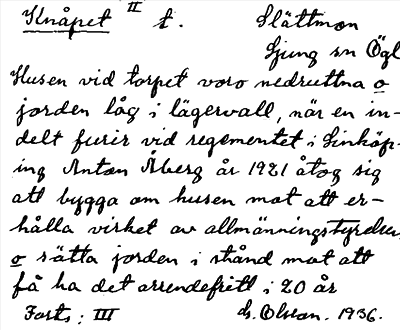 Knåpet II t. Slättmon
Ljung sn Ögl
Husen vid torpet voro nedruttna o
jorden låg i lägervall, när en in-
delt furir vid regementet i Linköp-
ing Anton Åberg år 1921 åtog sig
att bygga om husen mot att er-
hålla virket av allmänningsstyrelsen,
o sätta jorden i stånd mot att
få ha det arrendefritt i 20 år
Forts: III G. Olson. 1936.